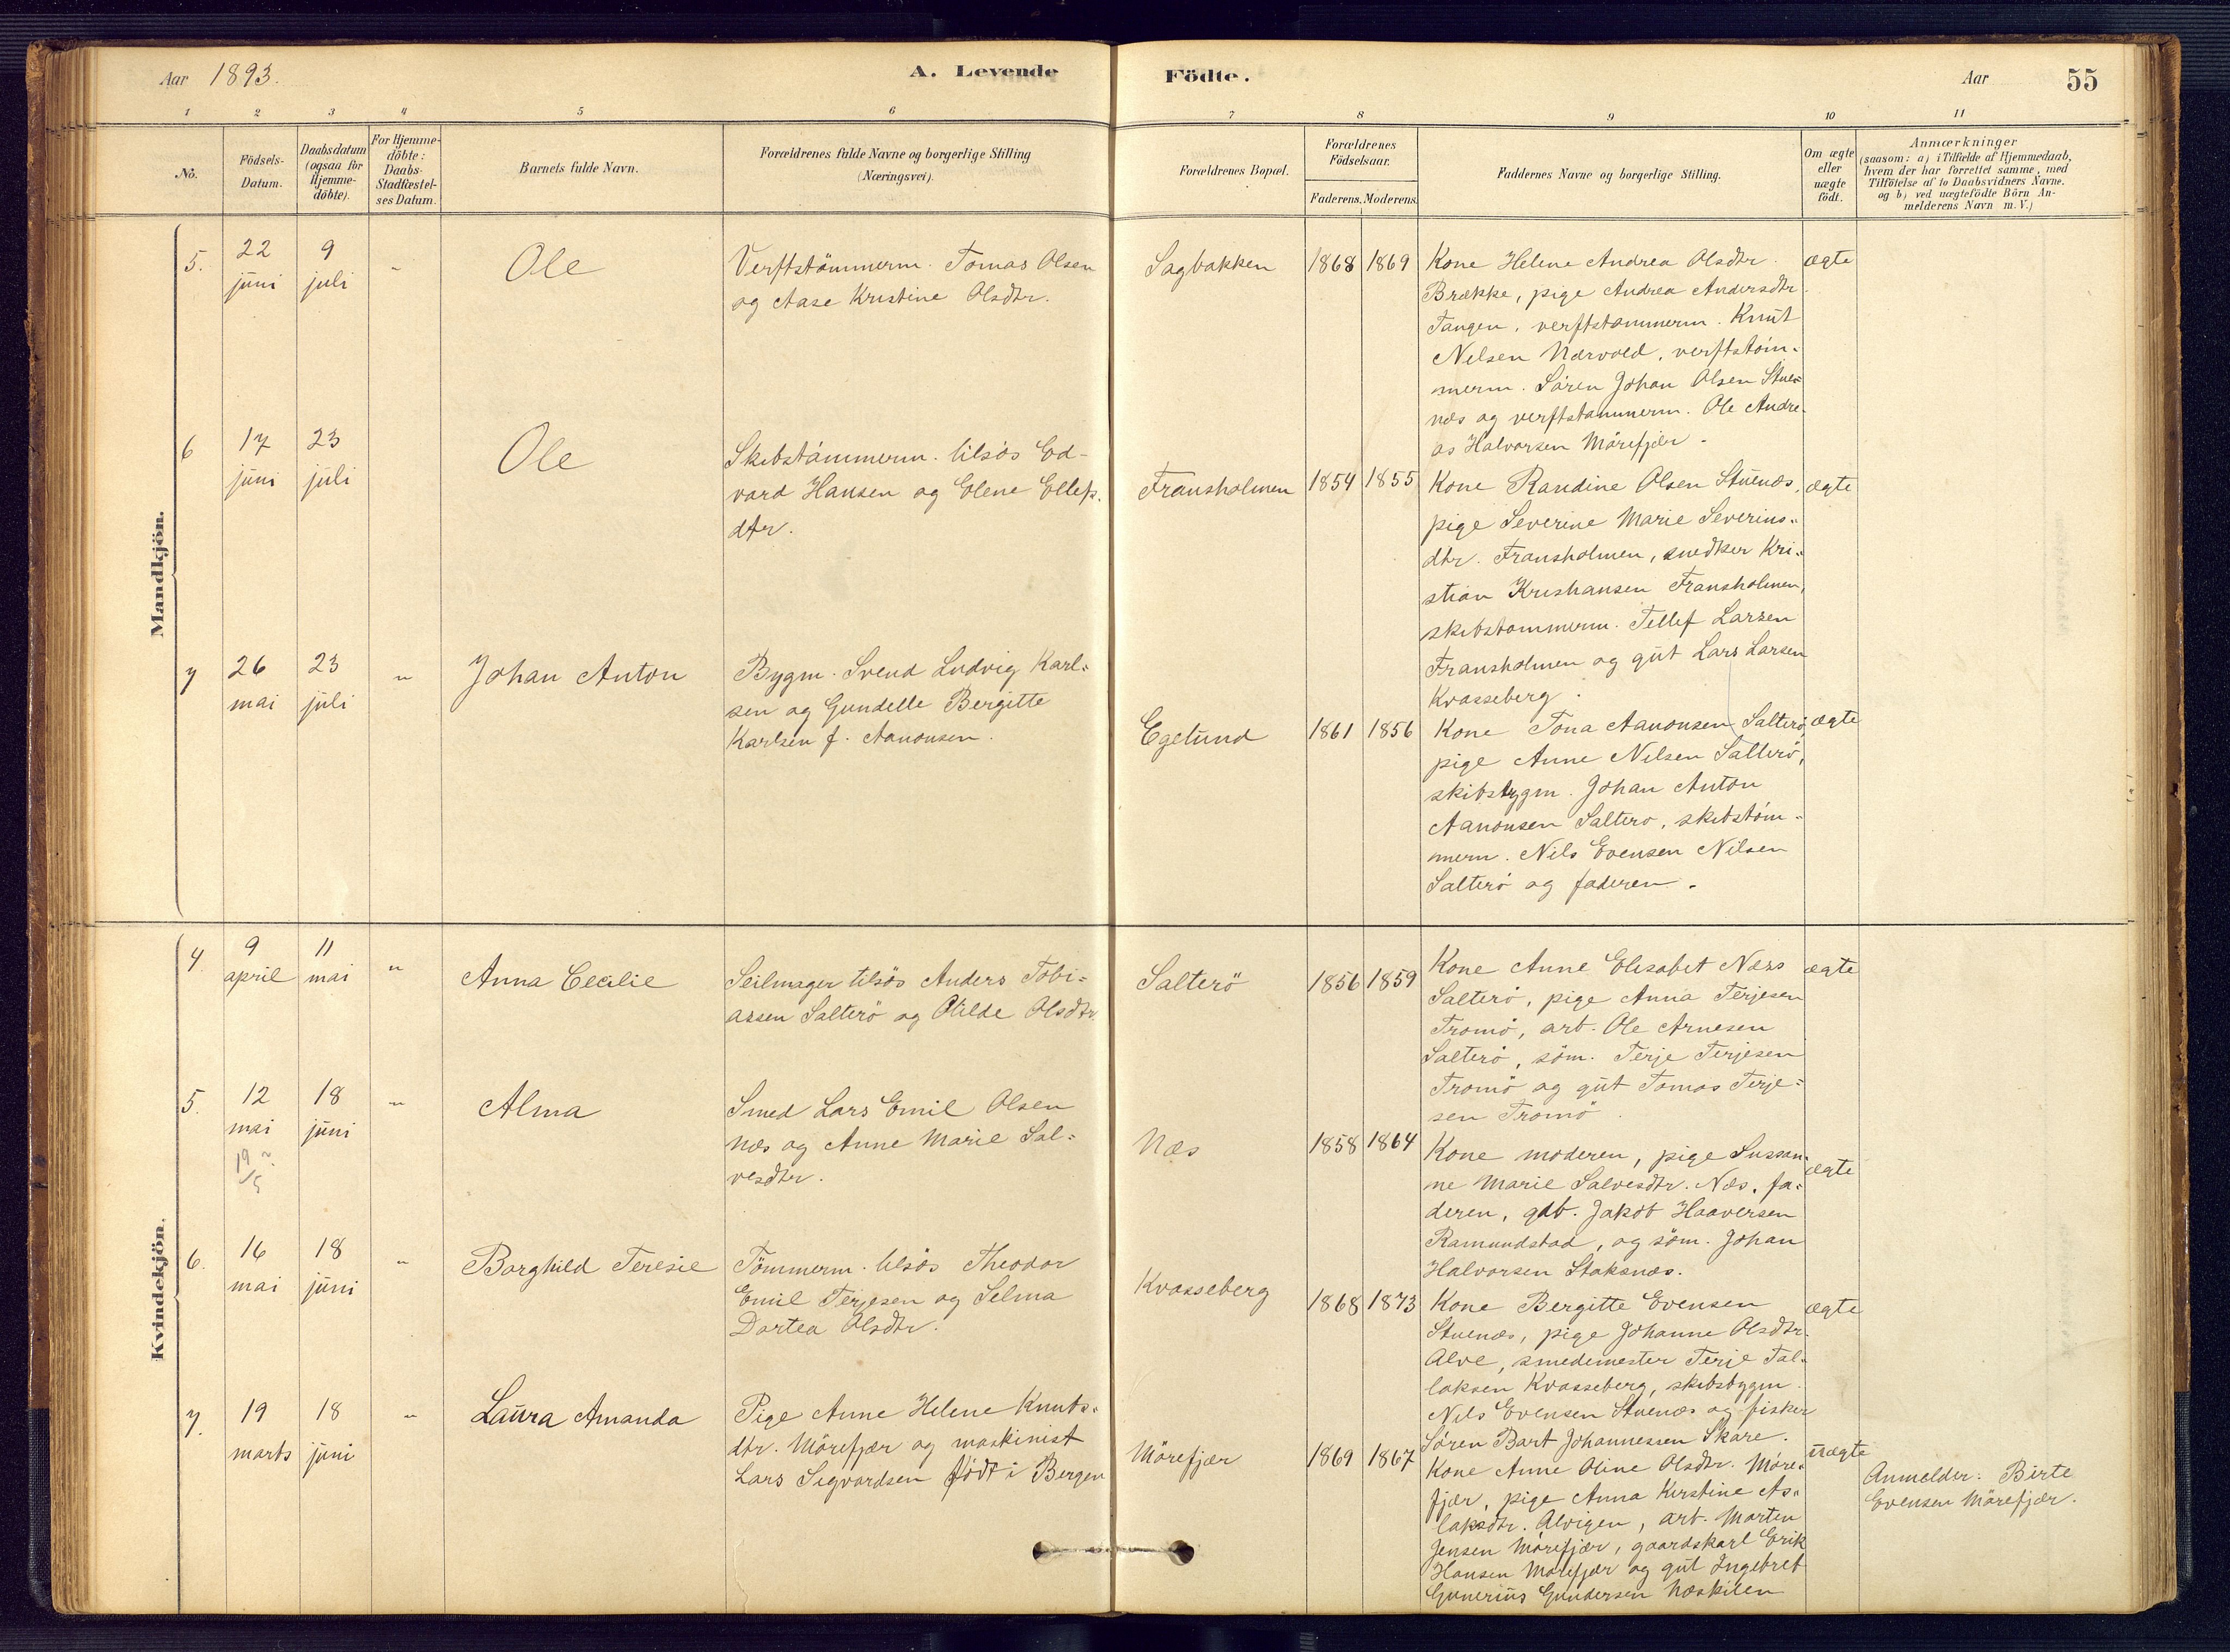 Aar 1893.
A. Levende
Födte.
Aar
55
1 2 3 4 5 6 7 8 9 10 11
No.
Födsels-
Datum.
Daabsdatum
(ogsaa for
Hjemme-
döbte).
For Hjemme-
döbte:
Daabs-
Stadfæstel-
ses Datum.
Barnets fulde Navn.
Forældrenes fulde Navne og borgerlige Stilling
(Næringsvei).
Forældrenes Bopæl.
Forældrenes
Födselsaar.
Faderens. Moderens.
Faddernes Navne og borgerlige Stilling.
Om ægte
eller
uægte
födt.
Anmærkninger
(saasom: a) i Tilfælde af Hjemmedaab,
hvem der har forrettet samme, med
Tilföielse af to Daabsvidners Navne.
og b) ved uægtefödte Börn An-
melderens Navn m. V.)
Mandkjön.
5.
22
juni
9
juli
"
Ole
Verftstömmerm. Tomas Olsen
og Aase Kristine Olsdtr.
Sagbakken
1868
1869
Kone Helene Andrea Olsdtr.
Brække, pige Andrea Andersdtr.
Tangen, verftstømmerm. Knut
Nelsen Nærvold, verftstöm-
merm. Sören Johan Olsen Stue-
næs og verftstømmerm. Ole Andre-
as Halvorsen Mörefjær.
ægte
6
17
juni
23
juli
Ole
Skibstömmerm. tilsös Ed-
vard Hansen og Elene Ellefs.
dtr.
Fransholmen
1854
1855
Kone Randine Olsen Stuenæs,
pige Severine Marie Severins-
dtr. Fransholmen, snedker Kri-
stian Kristiansen Fransholmen,
skibstømmerm. Tellef Larsen
Fransholmen og gut Lars Larsen
Kvasseberg.
ægte
7
26
mai
23
juli
"
Johan Anton
Bygm. Svend Ludvig Karl-
sen og Gundelle Bergitte
Karlsen f. Aanonsen.
Egelund
1861
1856
Kone Tona Aanonsen Salterö,
pige Anne Nelsen Salterö,
skibsbygm. Johan Anton
Aanonsen Salterö, skibstöm-
merm. Nils Evensen Nilsen
Salterö og faderen.
ægte
Kvindekjön.
4.
9
april
11
mai
"
Anna Cecilie
Seilmager tilsös Anders Tobi-
assen Salterö og Otilde Olsdtr.
Salterö
1856
1859
Kone Anne Elisabet Næss
Salterö, pige Anna Terjesen
Tromö, arb. Ole Arnesen
Salterö, söm. Terje Terjesen
Tromö og gut Tomas Terje-
sen Tromö.
ægte
5.
12
mai
19
5
18
juni
"
Alma
Smed Lars Emil Olsen
Næs og Anne Marie Sal-
vesdtr.
Næs
1858
1864
Kone moderen, pige Susan-
ne Marie Salvesdtr. Næs, fa-
deren, gdb. Jakob Haaversen
Ramundstad, og söm. Johan
Halvorsen Staksnæs.
ægte
6.
16
mai
18
juni
"
Borghild Teresie
Tömmerm. tilsös Theodor
Emil Terjesen og Selma
Dortea Olsdtr.
Kvasseberg
1868
1873
Kone Bergitte Evensen
Stuenæs, pige Johanne Olsdtr.
Alve, smedemester Terje Tal-
laksen Kvasseberg, skibsbygm.
Nils Evensen Stuenæs og fisker
Sören Bart Johannessen Skare.
ægte
7.
19
marts
18
juni
"
Laura Amanda
Pige Anne Helene Knuts-
dtr. Mörefjær og maskinist
Lars Sigvardsen födt i Bergen
Mörefjær
1869
1867
Kone Anne Oline Olsdtr. Möre-
fjær, pige Anna Kirstine As-
laksdtr. Alvigen, arb. Morten
Jensen Mörefjær, gaardskarl Erik
Hansen Mörefjær og gut Ingebret
Gunerius Gundersen Næskilen
uægte
Anmelder: Birte
Evensen Mörefjær.